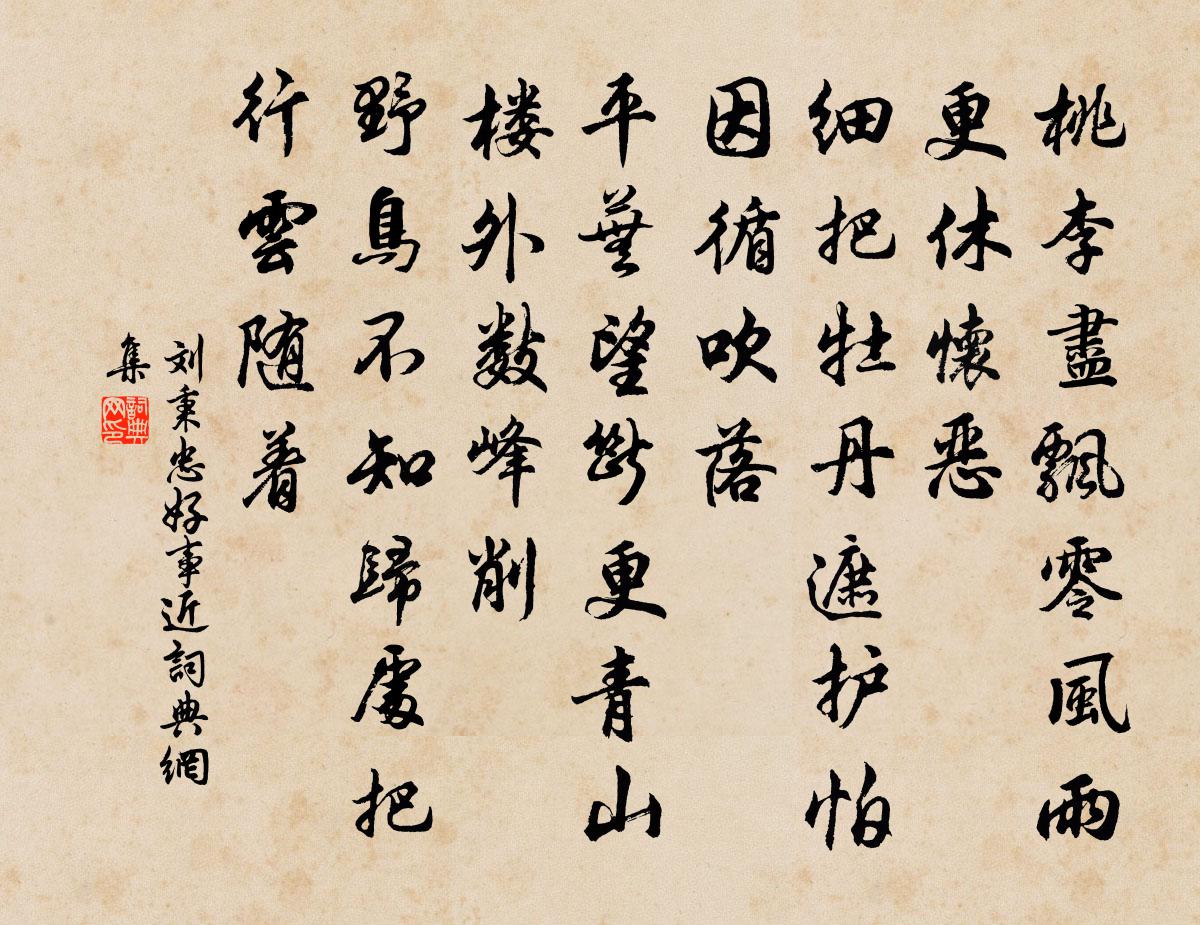 桃李盡飄零風雨
更休懷惡
细把牡丹遮护怕
因循吹落
平蕪望斷更青山
楼外数峰削
野鳥不知歸處把
行雲随着
刘秉忠好事近詞典網
集
詞典
网印